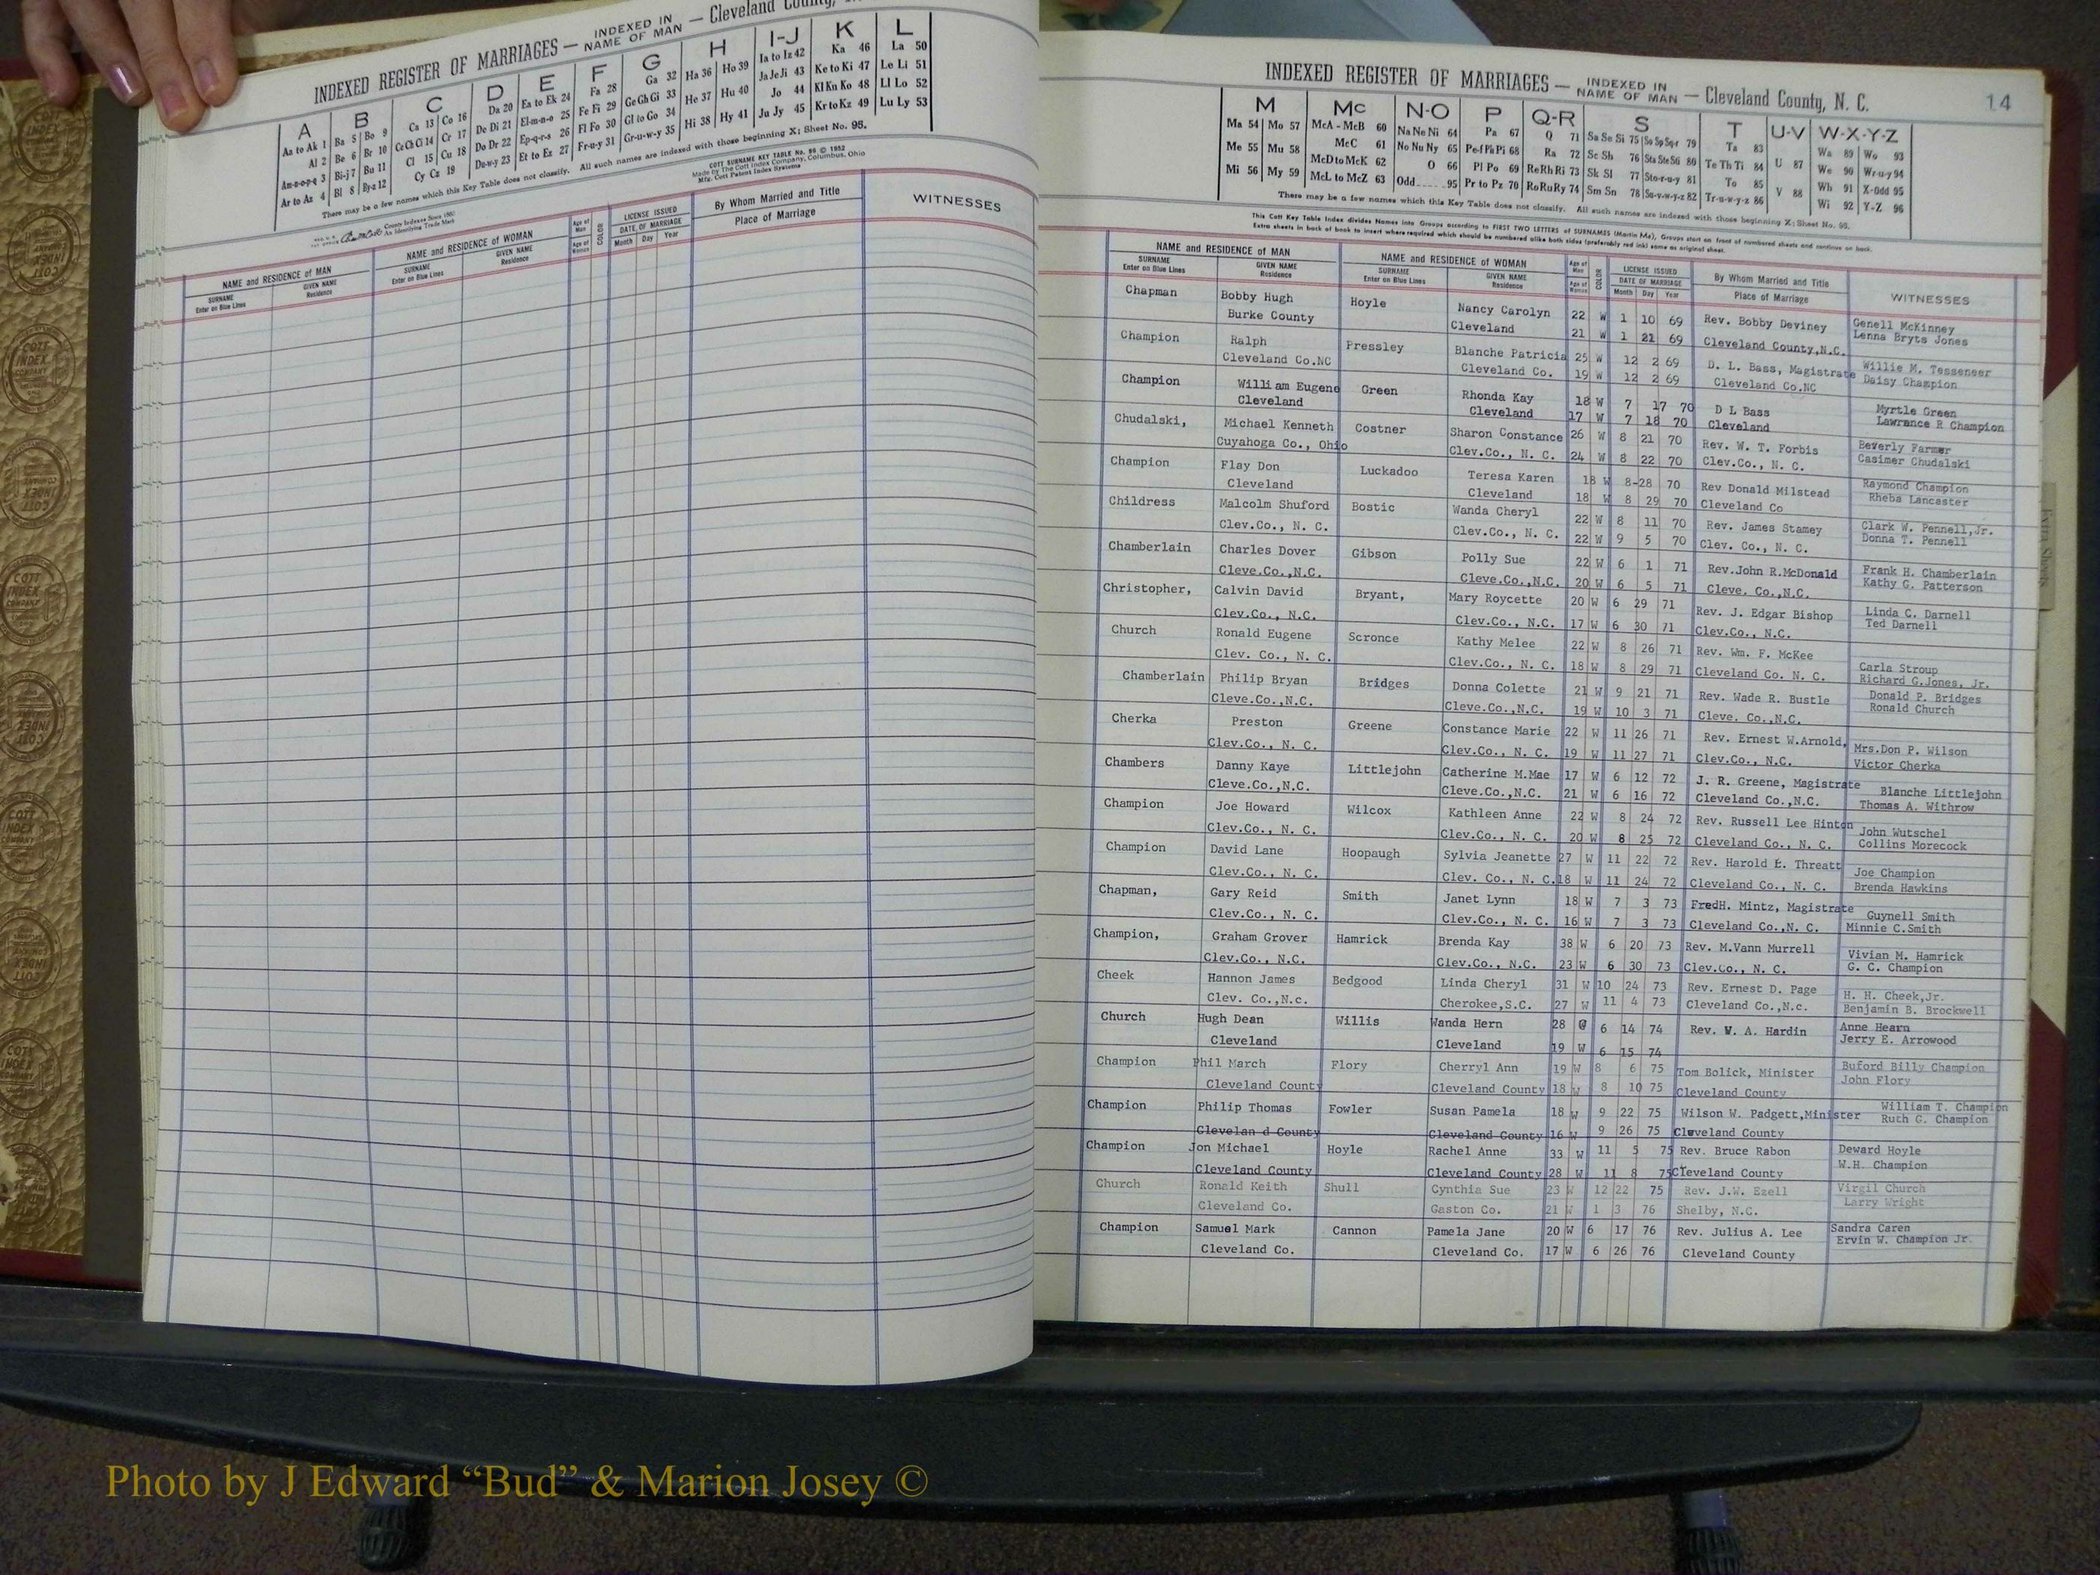 INDEXED REGISTER OF MARRIAGES — INDEXED IN NAME OF MAN — Cleveland County,
A B C D E F G H I-J K L
Aa to Ak 1 Ba 5 Bo 9 Ca 13 Co 16 Da 20 Ea to Ek 24 Fa 28 Ga 32 Ha 36 Ho 39 Ia to Iz 42 Ka 46 La 50
Al 2 Be 6 Br 10 Ce Ch Ci 14 Cr 17 De Di 21 El-m-n-o 25 Fe Fi 29 Ge Gh Gi 33 He 37 Hu 40 Ja Je Ji 43 Ke to Ki 47 Le Li 51
Am-n-o-p-q 3 Bi-j 7 Bu 11 Cl 15 Cu 18 Do Dr 22 Ep-q-r-s 26 Fl Fo 30 Gl to Go 34 Hi 38 Hy 41 Jo 44 Kl Kn Ko 48 Ll Lo 52
Ar to Az 4 Bl 8 By-z 12 Cy Cz 19 Du-w-y 23 Et to Ez 27 Fr-u-y 31 Gr-u-w-y 35 Ju Jy 45 Kr to Kz 49 Lu Ly 53
There may be a few names which this Key Table does not classify. All such names are indexed with those beginning X: Sheet No. 95.
COTT SURNAME KEY TABLE No. 96 © 1952
Made by The Cott Index Company, Columbus, Ohio
Mfg. Cott Patent Index Systems
County Indexes Since 1880
An Identifying Trade Mark
NAME and RESIDENCE OF MAN
SURNAME
Enter on Blue Lines
GIVEN NAME
Residence
NAME and RESIDENCE OF WOMAN
SURNAME
Enter on Blue Lines
GIVEN NAME
Residence
Age of Man
Age of Woman
COLOR
LICENSE ISSUED
DATE OF MARRIAGE
Month Day Year
By Whom Married and Title
Place of Marriage
WITNESSES
INDEXED REGISTER OF MARRIAGES — INDEXED IN NAME OF MAN — Cleveland County, N. C.
14
M Mc N-O P Q-R S T U-V W-X-Y-Z
Ma 54 Mo 57 McA - McB 60 Na Ne Ni 64 Pa 67 Q 71 Sa Se Si 75 So Sp Sq-r 79 Ta 83 Wa 89 Wo 93
Me 55 Mu 58 McC 61 No Nu Ny 65 Pe-f Ph Pi 68 Ra 72 Sc Sh 76 Sta Ste Sti 80 Te Th Ti 84 U 87 We 90 Wr-u-y 94
Mi 56 My 59 McD to McK 62 O 66 Pl Po 69 Re Rh Ri 73 Sk Sl 77 Sto-r-u-y 81 To 85 Wh 91 X-Odd 95
McL to McZ 63 Odd 95 Pr to Pz 70 Ro Ru Ry 74 Sm Sn 78 Su-v-w-y-z 82 Tr-u-w-y-z 86 V 88 Wi 92 Y-Z 96
There may be a few names which this Key Table does not classify. All such names are indexed with those beginning X; Sheet No. 95.
This Cott Key Table Index divides Names into Groups according to FIRST TWO LETTERS of SURNAMES (Martin Ma), Groups start on front of numbered sheets and continue on back.
Extra sheets in back of book to insert where required which should be numbered alike both sides (preferably red ink) same as original sheet.
NAME and RESIDENCE OF MAN
SURNAME
Enter on Blue Lines
GIVEN NAME
Residence
NAME and RESIDENCE OF WOMAN
SURNAME
Enter on Blue Lines
GIVEN NAME
Residence
Age of Man
Age of Woman
COLOR
LICENSE ISSUED
DATE OF MARRIAGE
Month Day Year
By Whom Married and Title
Place of Marriage
WITNESSES
Chapman Bobby Hugh Hoyle Nancy Carolyn 22 W 1 10 69 Rev. Bobby Deviney Genell McKinney
Burke County Cleveland 21 W 1 21 69 Cleveland County,N.C. Lenna Bryts Jones
Champion Ralph Pressley Blanche Patricia 25 W 12 2 69 D. L. Bass, Magistrate Willie M. Tesseneer
Cleveland Co.NC Cleveland Co. 19 W 12 2 69 Cleveland Co.NC Daisy Champion
Champion William Eugene Green Rhonda Kay 18 W 7 17 70 D L Bass Myrtle Green
Cleveland Cleveland 17 W 7 18 70 Cleveland Lawrance R Champion
Chudalski, Michael Kenneth Costner Sharon Constance 26 W 8 21 70 Rev. W. T. Forbis Beverly Farmer
Cuyahoga Co., Ohio Clev.Co., N. C. 24 W 8 22 70 Clev.Co., N. C. Casimer Chudalski
Champion Flay Don Luckadoo Teresa Karen 18 W 8-28 70 Rev Donald Milstead Raymond Champion
Cleveland Cleveland 18 W 8 29 70 Cleveland Co Rheba Lancaster
Childress Malcolm Shuford Bostic Wanda Cheryl 22 W 8 11 70 Rev. James Stamey Clark W. Pennell,Jr.
Clev.Co., N. C. Clev.Co., N. C. 22 W 9 5 70 Clev. Co., N. C. Donna T. Pennell
Chamberlain Charles Dover Gibson Polly Sue 22 W 6 1 71 Rev.John R.McDonald Frank H. Chamberlain
Cleve.Co.,N.C. Cleve.Co.,N.C. 20 W 6 5 71 Cleve. Co.,N.C. Kathy G. Patterson
Christopher, Calvin David Bryant, Mary Roycette 20 W 6 29 71 Rev. J. Edgar Bishop Linda C. Darnell
Clev.Co., N.C. Clev.Co., N.C. 17 W 6 30 71 Clev.Co., N.C. Ted Darnell
Church Ronald Eugene Scronce Kathy Melee 22 W 8 26 71 Rev. Wm. F. McKee Carla Stroup
Clev. Co., N. C. Clev.Co., N. C. 18 W 8 29 71 Cleveland Co. N. C. Richard G.Jones, Jr.
Chamberlain Philip Bryan Bridges Donna Colette 21 W 9 21 71 Rev. Wade R. Bustle Donald P. Bridges
Cleve.Co.,N.C. Cleve.Co.,N.C. 19 W 10 3 71 Cleve. Co.,N.C. Ronald Church
Cherka Preston Greene Constance Marie 22 W 11 26 71 Rev. Ernest W.Arnold, Mrs.Don P. Wilson
Clev.Co., N. C. Clev.Co., N. C. 19 W 11 27 71 Clev.Co., N.C. Victor Cherka
Chambers Danny Kaye Littlejohn Catherine M.Mae 17 W 6 12 72 J. R. Greene, Magistrate Blanche Littlejohn
Cleve.Co.,N.C. Cleve.Co.,N.C. 21 W 6 16 72 Cleveland Co.,N.C. Thomas A. Withrow
Champion Joe Howard Wilcox Kathleen Anne 22 W 8 24 72 Rev. Russell Lee Hinton John Wutschel
Clev.Co., N. C. Clev.Co., N. C. 20 W 8 25 72 Cleveland Co., N. C. Collins Morecock
Champion David Lane Hoopaugh Sylvia Jeanette 27 W 11 22 72 Rev. Harold E. Threatt Joe Champion
Clev.Co., N. C. Clev. Co., N. C. 18 W 11 24 72 Cleveland Co., N. C. Brenda Hawkins
Chapman, Gary Reid Smith Janet Lynn 18 W 7 3 73 FredH. Mintz, Magistrate Guynell Smith
Clev.Co., N. C. Clev.Co., N. C. 16 W 7 3 73 Cleveland Co.,N. C. Minnie C.Smith
Champion, Graham Grover Hamrick Brenda Kay 38 W 6 20 73 Rev. M.Vann Murrell Vivian M. Hamrick
Clev.Co., N.C. Clev.Co., N.C. 23 W 6 30 73 Clev.Co., N. C. G. C. Champion
Cheek Hannon James Bedgood Linda Cheryl 31 W 10 24 73 Rev. Ernest D. Page H. H. Cheek,Jr.
Clev. Co.,N.c. Cherokee,S.C. 27 W 11 4 73 Cleveland Co.,N.c. Benjamin B. Brockwell
Church Hugh Dean Willis Wanda Hern 28 6 14 74 Rev. W. A. Hardin Anne Hearn
Cleveland Cleveland 19 W 6 15 74 Jerry E. Arrowood
Champion Phil March Flory Cherryl Ann 19 W 8 6 75 Tom Bolick, Minister Buford Billy Champion
Cleveland County Cleveland County 18 W 8 10 75 Cleveland County John Flory
Champion Philip Thomas Fowler Susan Pamela 18 W 9 22 75 Wilson W. Padgett,Minister William T. Champion
Clevelan d County Cleveland County 16 W 9 26 75 Cleveland County Ruth G. Champion
Champion Jon Michael Hoyle Rachel Anne 33 W 11 5 75 Rev. Bruce Rabon Deward Hoyle
Cleveland County Cleveland County 28 W 11 8 75 Cleveland County W.H. Champion
Church Ronald Keith Shull Cynthia Sue 23 W 12 22 75 Rev. J.W. Ezell Virgil Church
Cleveland Co. Gaston Co. 21 W 1 3 76 Shelby, N.C. Larry Wright
Champion Samuel Mark Cannon Pamela Jane 20 W 6 17 76 Rev. Julius A. Lee Sandra Caren
Cleveland Co. Cleveland Co. 17 W 6 26 76 Cleveland County Ervin W. Champion Jr.
Photo by J Edward “Bud” & Marion Josey ©